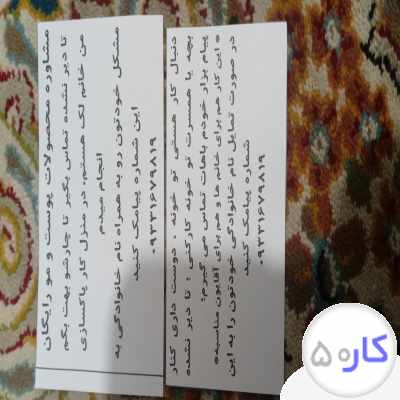 مشاوره محصولات پوست و مو رایگان
تا دیر نشده تماس بگیر تا چارشو بهت بگم
من خانم لک هستم، در منزل کار پاکسازی
انجام میدم
مشکل خودتون رو به همراه نام خانوادگی به
این شماره پیامک کنید.
۰۹۳۳۱۶۷۹۸۱۹
دنبال کار هستی تو خونه . دوست داری کنار
بچه یا همسرت تو خونه کارکنی ؛ تا دیر نشده
پیام بزار خودم باهات تماس می گیرم؛
ه این کار هم برای خانم ها و هم برای آقایون مناسبه
در صورت تمایل نام خانوادگی خودتون را به این
شماره پیامک کنید.
۰۹۳۳۱۶۷۹۸۱۹
کاره۵